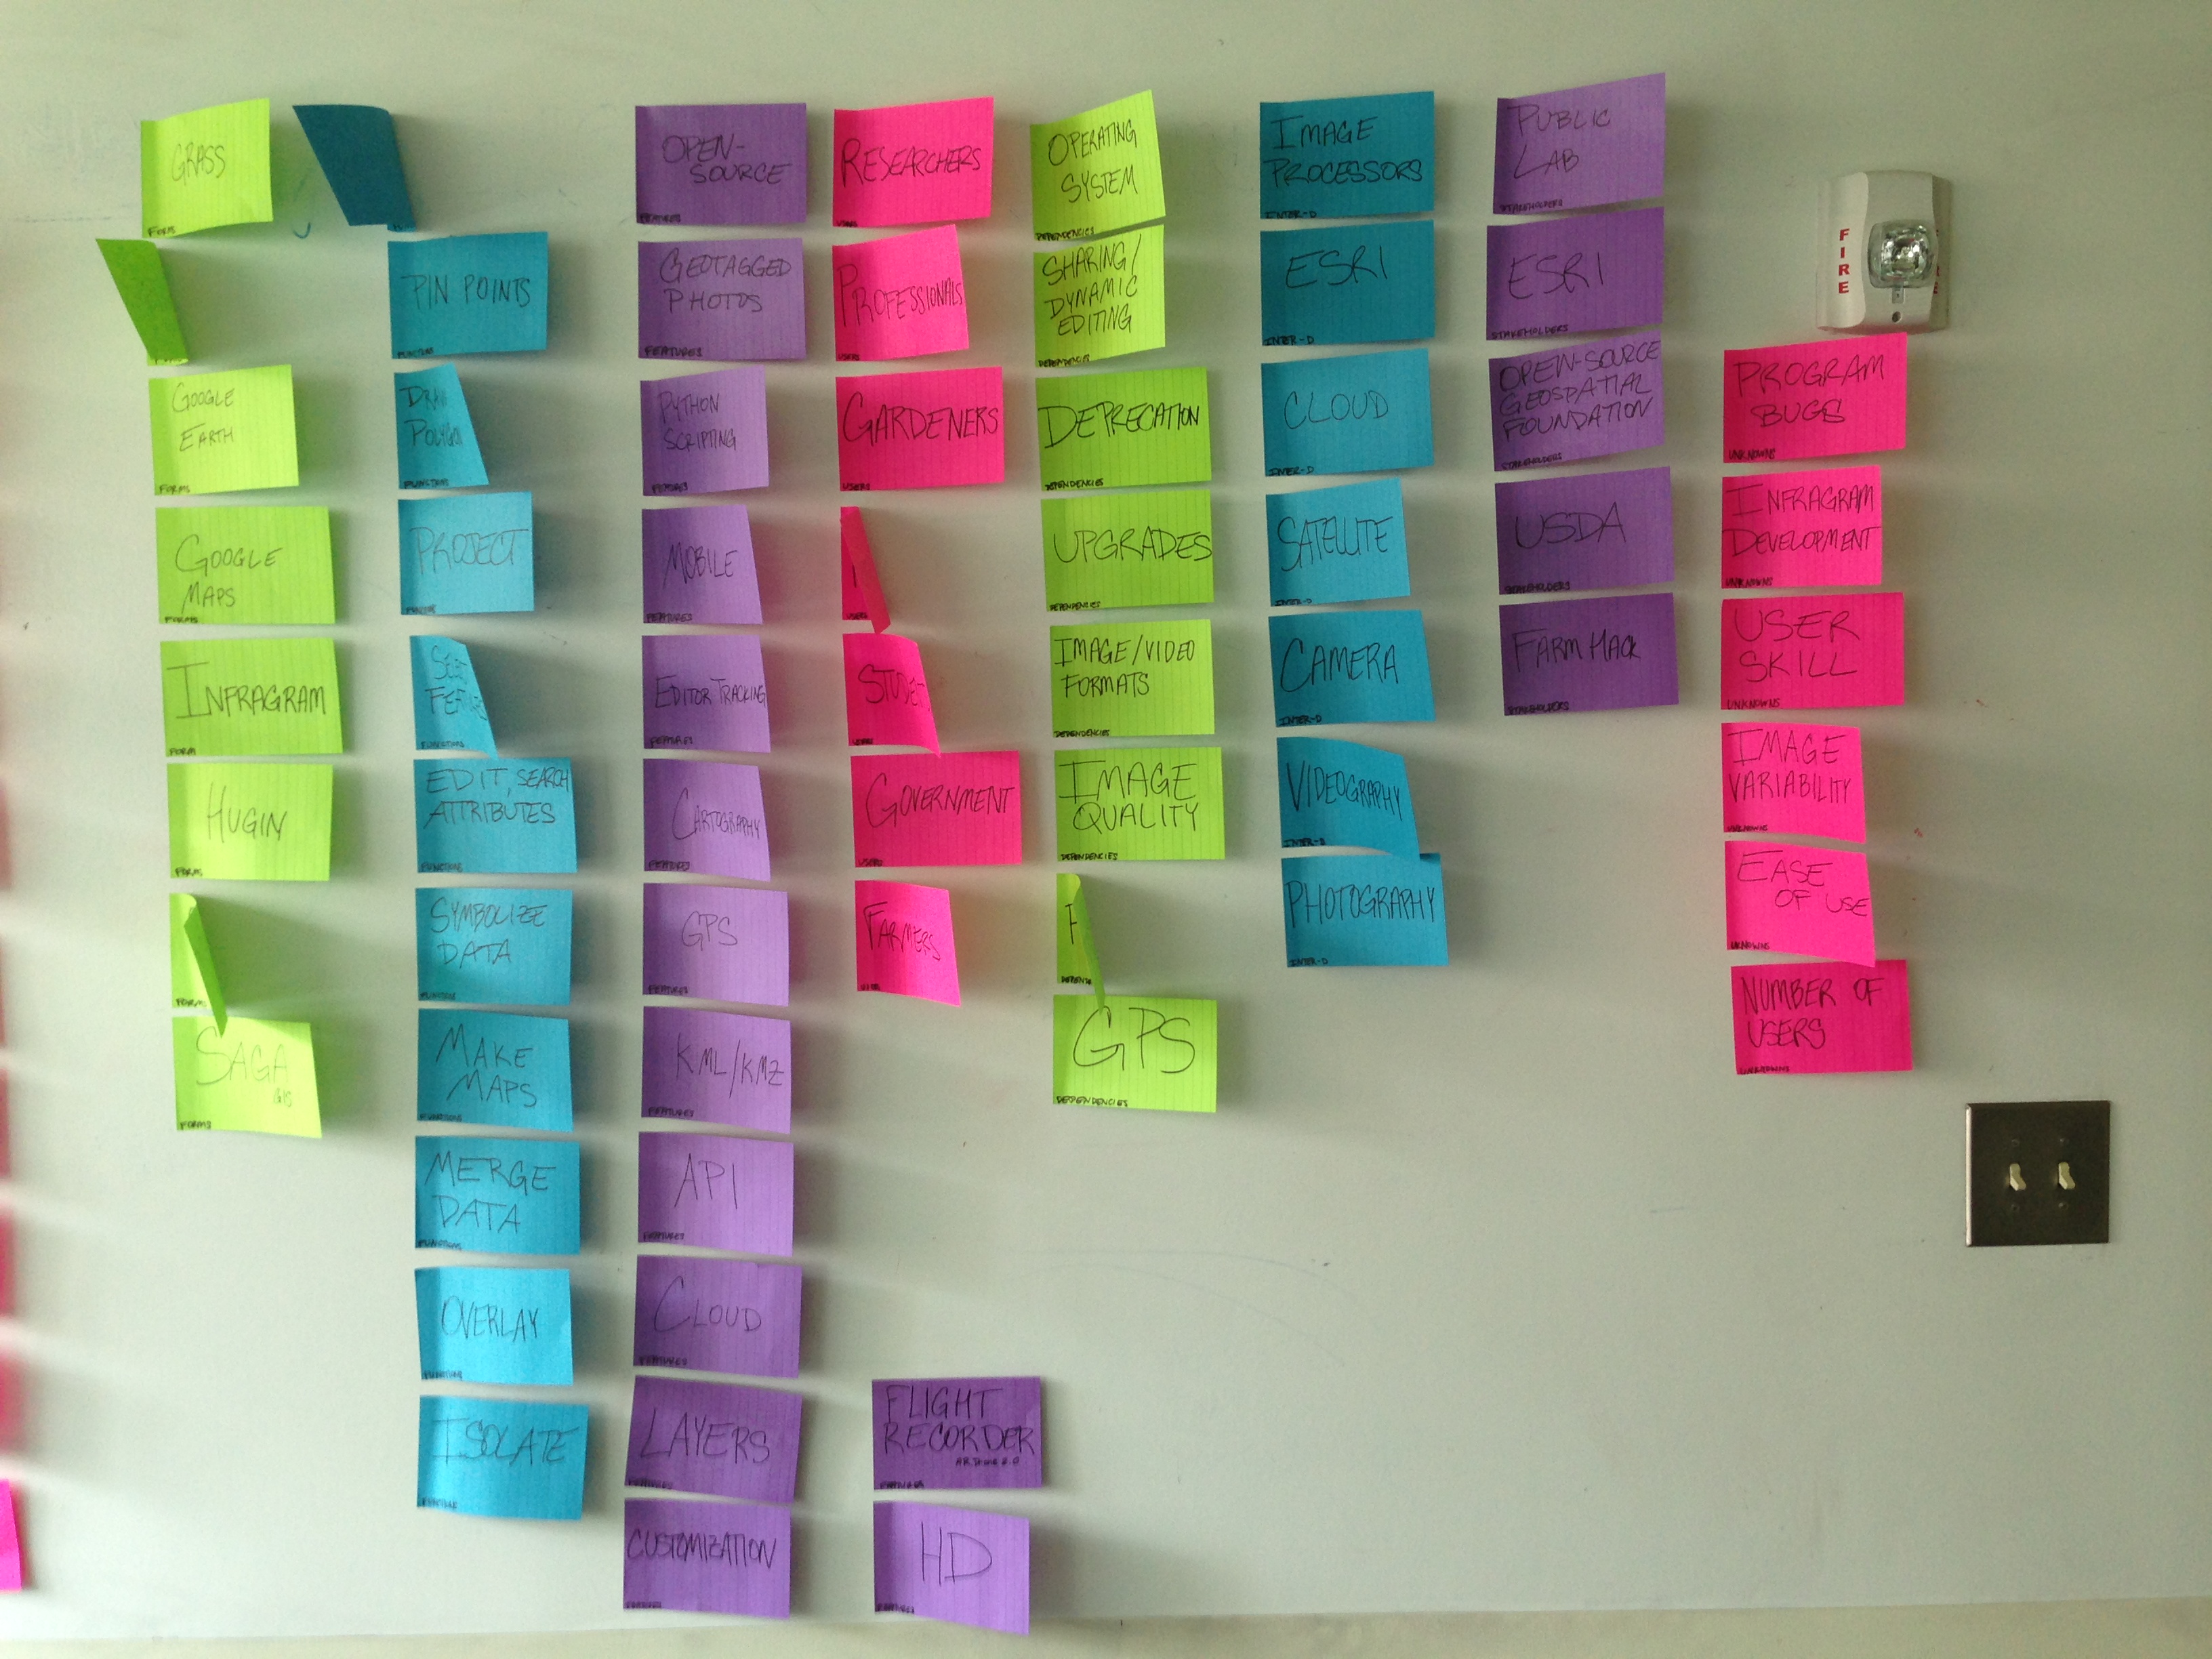 GRASS
FORMS
GOOGLE
EARTH
FORMS
GOOGLE
MAPS
FORMS
INFRAGRAM
FORM
HUGIN
FORMS
FORMS
SAGA
GIS
FORMS
PIN POINTS
FUNCTION
DRAW
FUNCTION
PROJECT
FUNCTION
FUNCTIONS
EDIT, SEARCH
ATTRIBUTES
FUNCTIONS
SYMBOLIZE
DATA
FUNCTIONS
MAKE
MAPS
FUNCTIONS
MERGE
DATA
FUNCTIONS
OVERLAY
FUNCTIONS
ISOLATE
FUNCTIONS
OPEN-
SOURCE
FEATURES
GEOTAGGED
PHOTOS
FEATURES
PYTHON
SCRIPTING
FEATURES
MOBILE
FEATURES
EDITOR TRACKING
FEATURES
CARTOGRAPHY
FEATURES
GPS
FEATURES
KML/KMZ
FEATURES
API
FEATURES
CLOUD
FEATURES
LAYERS
FEATURES
CUSTOMIZATION
FEATURES
FLIGHT
RECORDER
AR.DRONE 2.0
FEATURES
HD
FEATURES
RESEARCHERS
USERS
PROFESSIONALS
USERS
GARDENERS
USERS
USERS
USERS
GOVERNMENT
USERS
FARMERS
USERS
OPERATING
SYSTEM
DEPENDENCIES
SHARING/
DYNAMIC
EDITING
DEPENDENCIES
DEPRECATION
DEPENDENCIES
UPGRADES
DEPENDENCIES
IMAGE/VIDEO
FORMATS
DEPENDENCIES
IMAGE
QUALITY
DEPENDENCIES
GPS
DEPENDENCIES
IMAGE
PROCESSORS
INTER-D
ESRI
INTER-D
CLOUD
INTER-D
SATELLITE
INTER-D
CAMERA
INTER-D
VIDEOGRAPHY
INTER-D
PHOTOGRAPHY
INTER-D
PUBLIC
LAB
STAKEHOLDERS
ESRI
STAKEHOLDERS
OPEN-SOURCE
GEOSPATIAL
FOUNDATION
STAKEHOLDERS
USDA
STAKEHOLDERS
FARM HACK
STAKEHOLDERS
FIRE
PROGRAM
BUGS
UNKNOWNS
INFRAGRAM
DEVELOPMENT
UNKNOWNS
USER
SKILL
UNKNOWNS
IMAGE
VARIABILITY
UNKNOWNS
EASE
OF USE
UKNOWNS
NUMBER OF
USERS
UNKNOWNS